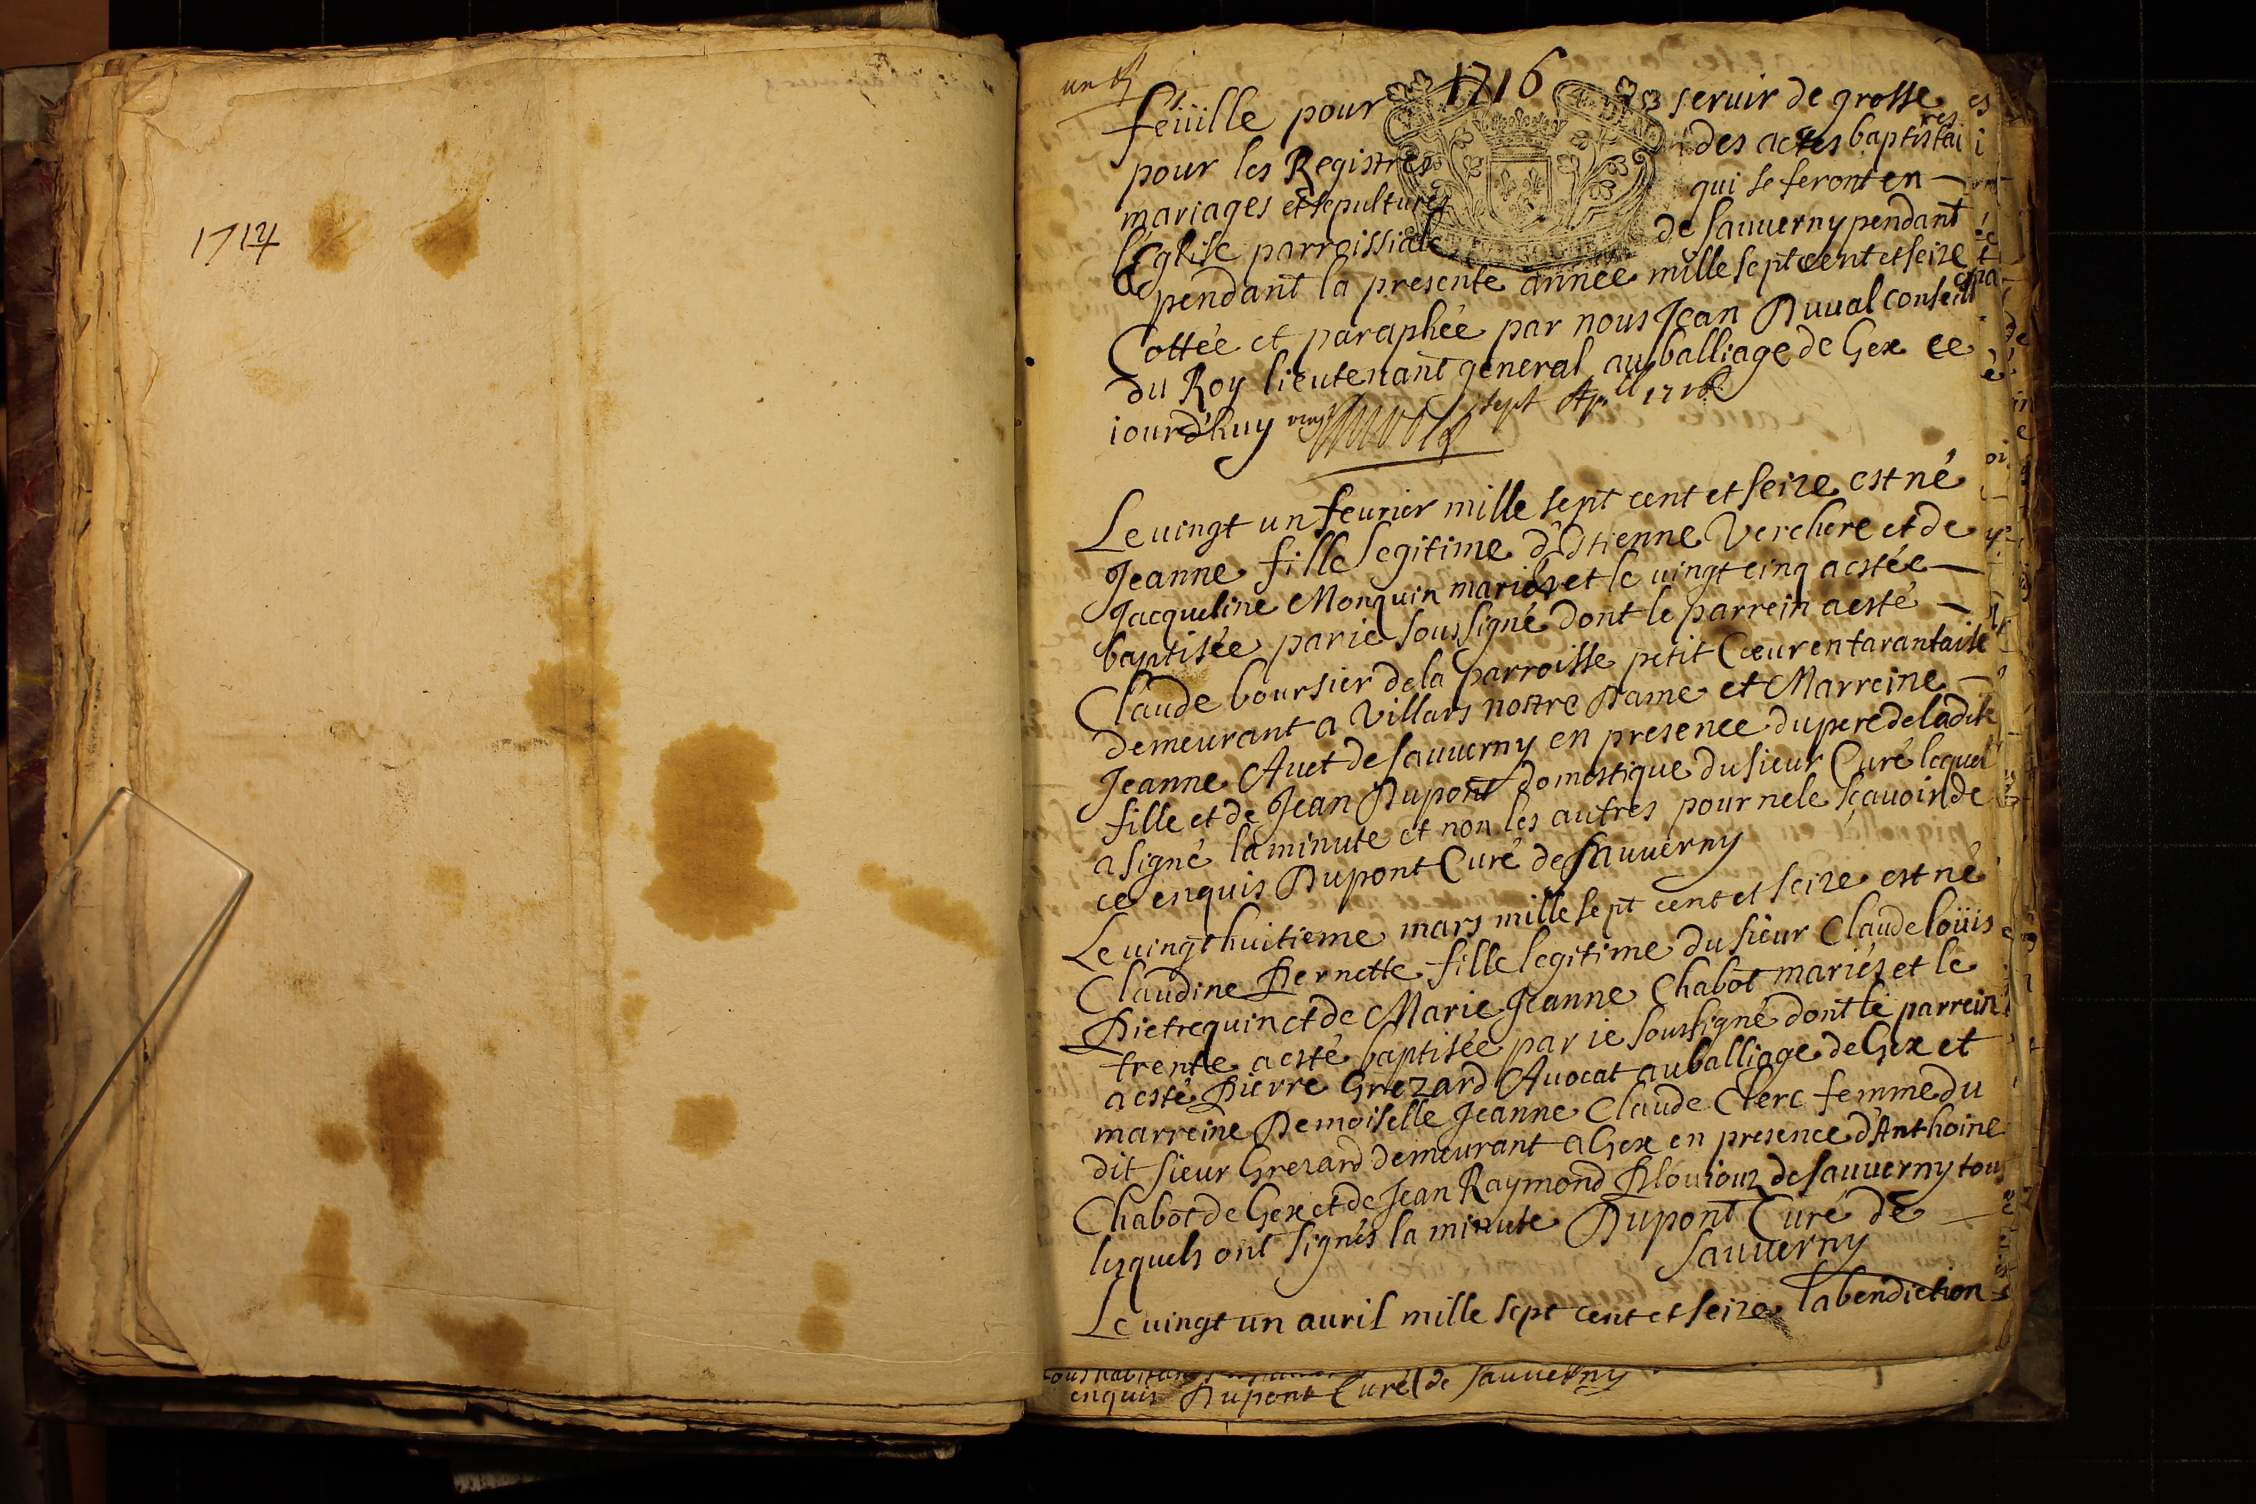 1714
1716
feüille pour servir de grosse
pour les Registres des actes baptistaires
mariages et sepultures qui se feront en
l'Eglise parroissiale de Sauverny pendant
pendant la presente année mille sept cent et seize
Cottée et paraphée par nous Jean Duval conseill
du Roy lieutenant general au balliage de Gex ce
iourd'huy vingt sept Apvll 1716
Le vingt un fevrier mille sept cent et seize est né
Jeanne fille legitime d'Etienne Verchere et de
Jacqueline Monquin mariés et le vingt cinq a estée
baptisée par ie soussigné dont le parrein a esté
Claude boursier de la parroisse petit Coeur en tarantaise
demeurant a Villars nostre Dame et Marreine
Jeanne Avet de Sauverny en presence du pere de la dite
fille et de Jean Dupont domestique du sieur Curé lequel
a signé la minute et non les autres pour ne le sçavoir de
ce enquis Dupont Curé de Sauverny
Le vingt huitieme mars mille sept cent et seize est né
Claudine Pernette fille legitime du sieur Claude loüis
Dietrequin et de Marie Jeanne Chabot mariés et le
trente a esté baptisée par ie soussigné dont le parrein
a esté Pierre Grezard Avocat au balliage de Gex et
marreine Demoiselle Jeanne Claude Clerc femme du
dit sieur Grezard demeurant a Gex en presence d'Anthoine
Chabot de Gex et de Jean Raymond de Sauverny tous
lesquels ont signés la minute Dupont Curé de
Sauverny
Le vingt un avril mille sept cent et seize la bendiction
enquis Dupont Curé de Sauverny